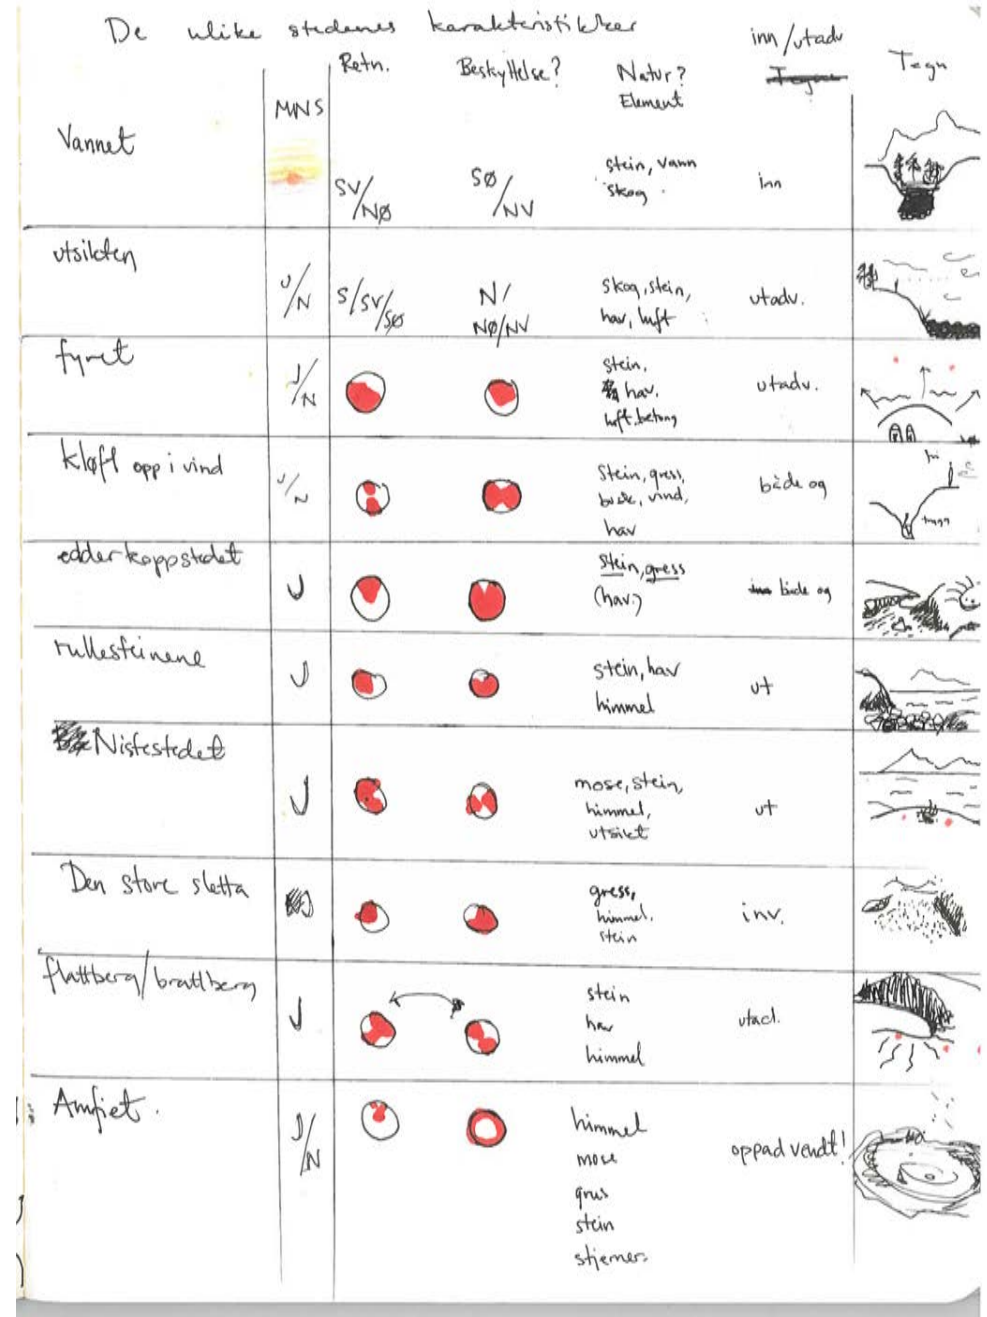 De ulike stedenes karakteristikker
MNS
Retn.
Beskyttelse?
Natur?
Element
inn/utadv
Tegn
Vannet
SV/NØ
SØ/NV
stein, vann
skog
inn
utsikten
J/N
S/SV/SØ
N/
NØ/NV
skog, stein,
hav, luft
utadv.
fyret
J/N
stein,
hav.
luft, betong
utadv.
kløft opp i vind
J/N
Stein, gress,
vind,
hav
både og
edderkoppstedet
J
stein, gress
(hav?)
både og
rullesteinene
J
stein, hav
himmel
ut
Nistestedet
J
mose, stein,
himmel,
utsikt
ut
Den store sletta
gress,
himmel.
stein
inv.
flattberg/brattberg
J
stein
hav
himmel
utad.
Amfiet.
J/N
himmel
mose
grus
stein
stjerner
oppadvendt!